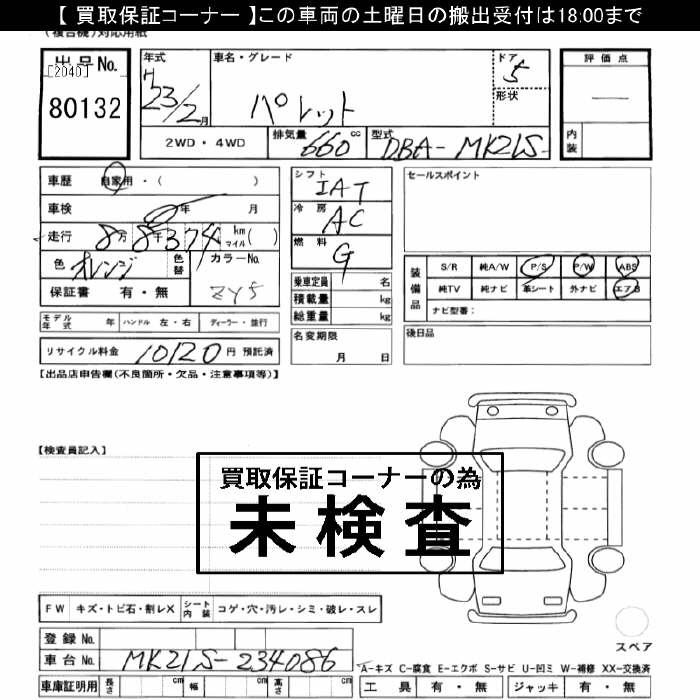 【 買取保証コーナー 】この車両の土曜日の搬出受付は18:00まで
(複合機)対応用紙
出品No. [2040] 80132
年式 H23/2月 車名・グレード パレット ドア 5 形状
評価点 — 内装
2WD・4WD 排気量 660cc 型式 DBA-MK21S-
車歴 自家用・( )
車検 年 月
走行 8万8千374 km マイル( )
色 オレンジ 色替 カラーNo. ZY5
保証書 有・無
シフト IAT
冷房 AC
燃料 G
乗車定員 名
積載量 kg
総重量 kg
名変期限 月 日
セールスポイント
装備品 S/R 純A/W P/S P/W ABS
純TV 純ナビ 革シート 外ナビ エアB
ナビ型番:
後日品
モデル年式 年 ハンドル 左・右 ディーラー・並行
リサイクル料金 10120 円 預託済
【出品店申告欄(不良個所・欠品・注意事項等)】
【検査員記入】
買取保証コーナーの為
未検査
FW キズ・トビ石・割レX シート内装 コゲ・穴・汚レ・シミ・破レ・スレ
スペア
登録No.
車台No. MK21S-234086
A-キズ C-腐食 E-エクボ S-サビ U-凹ミ W-補修 XX-交換済
車庫証明用 長さ cm 幅 cm 高さ cm
工具 有・無 ジャッキ 有・無